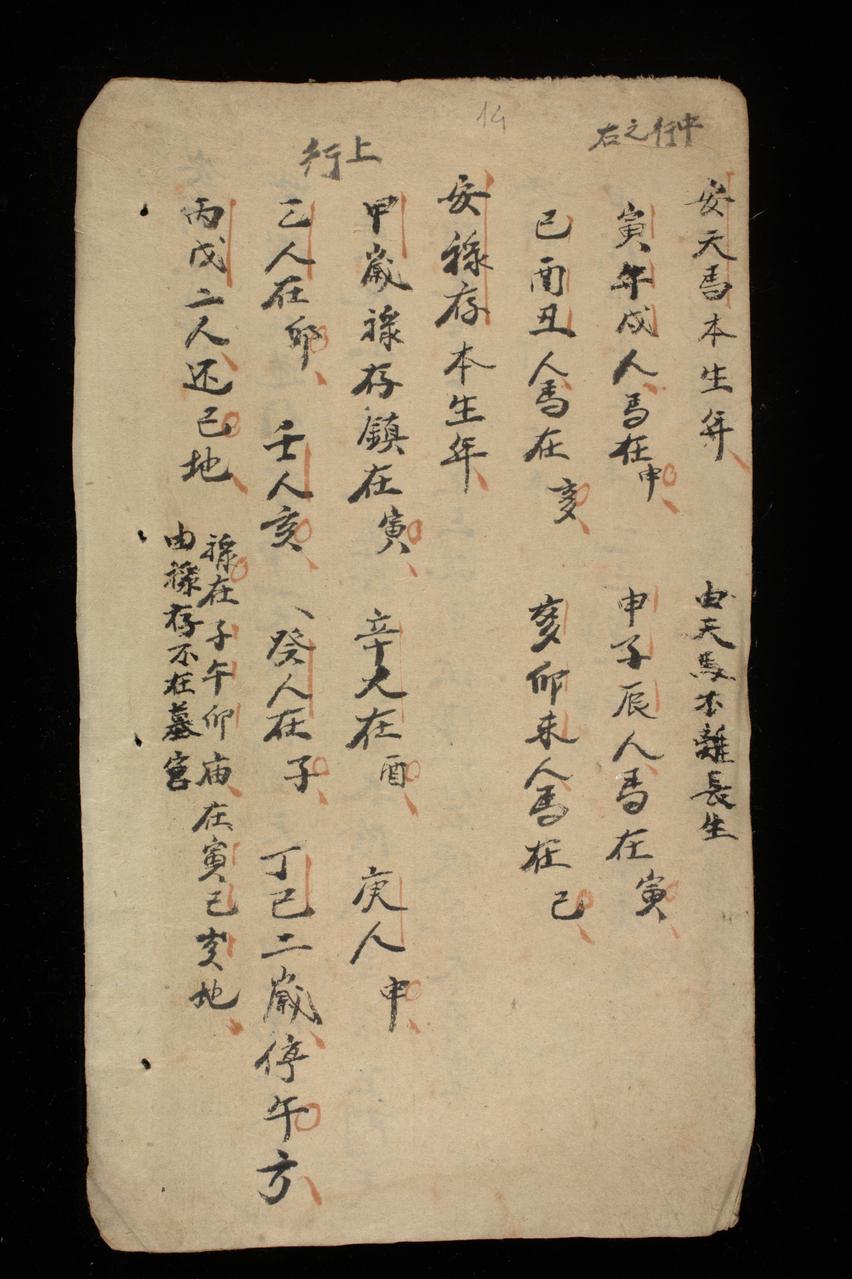 14
中行之右
安天馬本生年 由天馬不離長生
寅午戌人馬在申 申子辰人馬在寅
巳酉丑人馬在亥 亥卯未人馬在巳
安祿存本生年
上行
甲歲祿存鎮在寅 辛人在酉 庚人申
乙人在卯 壬人亥 癸人在子 丁己二歲停午方
丙戊二人还巳地 祿在子午卯庙在寅巳亥地
由祿存不在墓宮